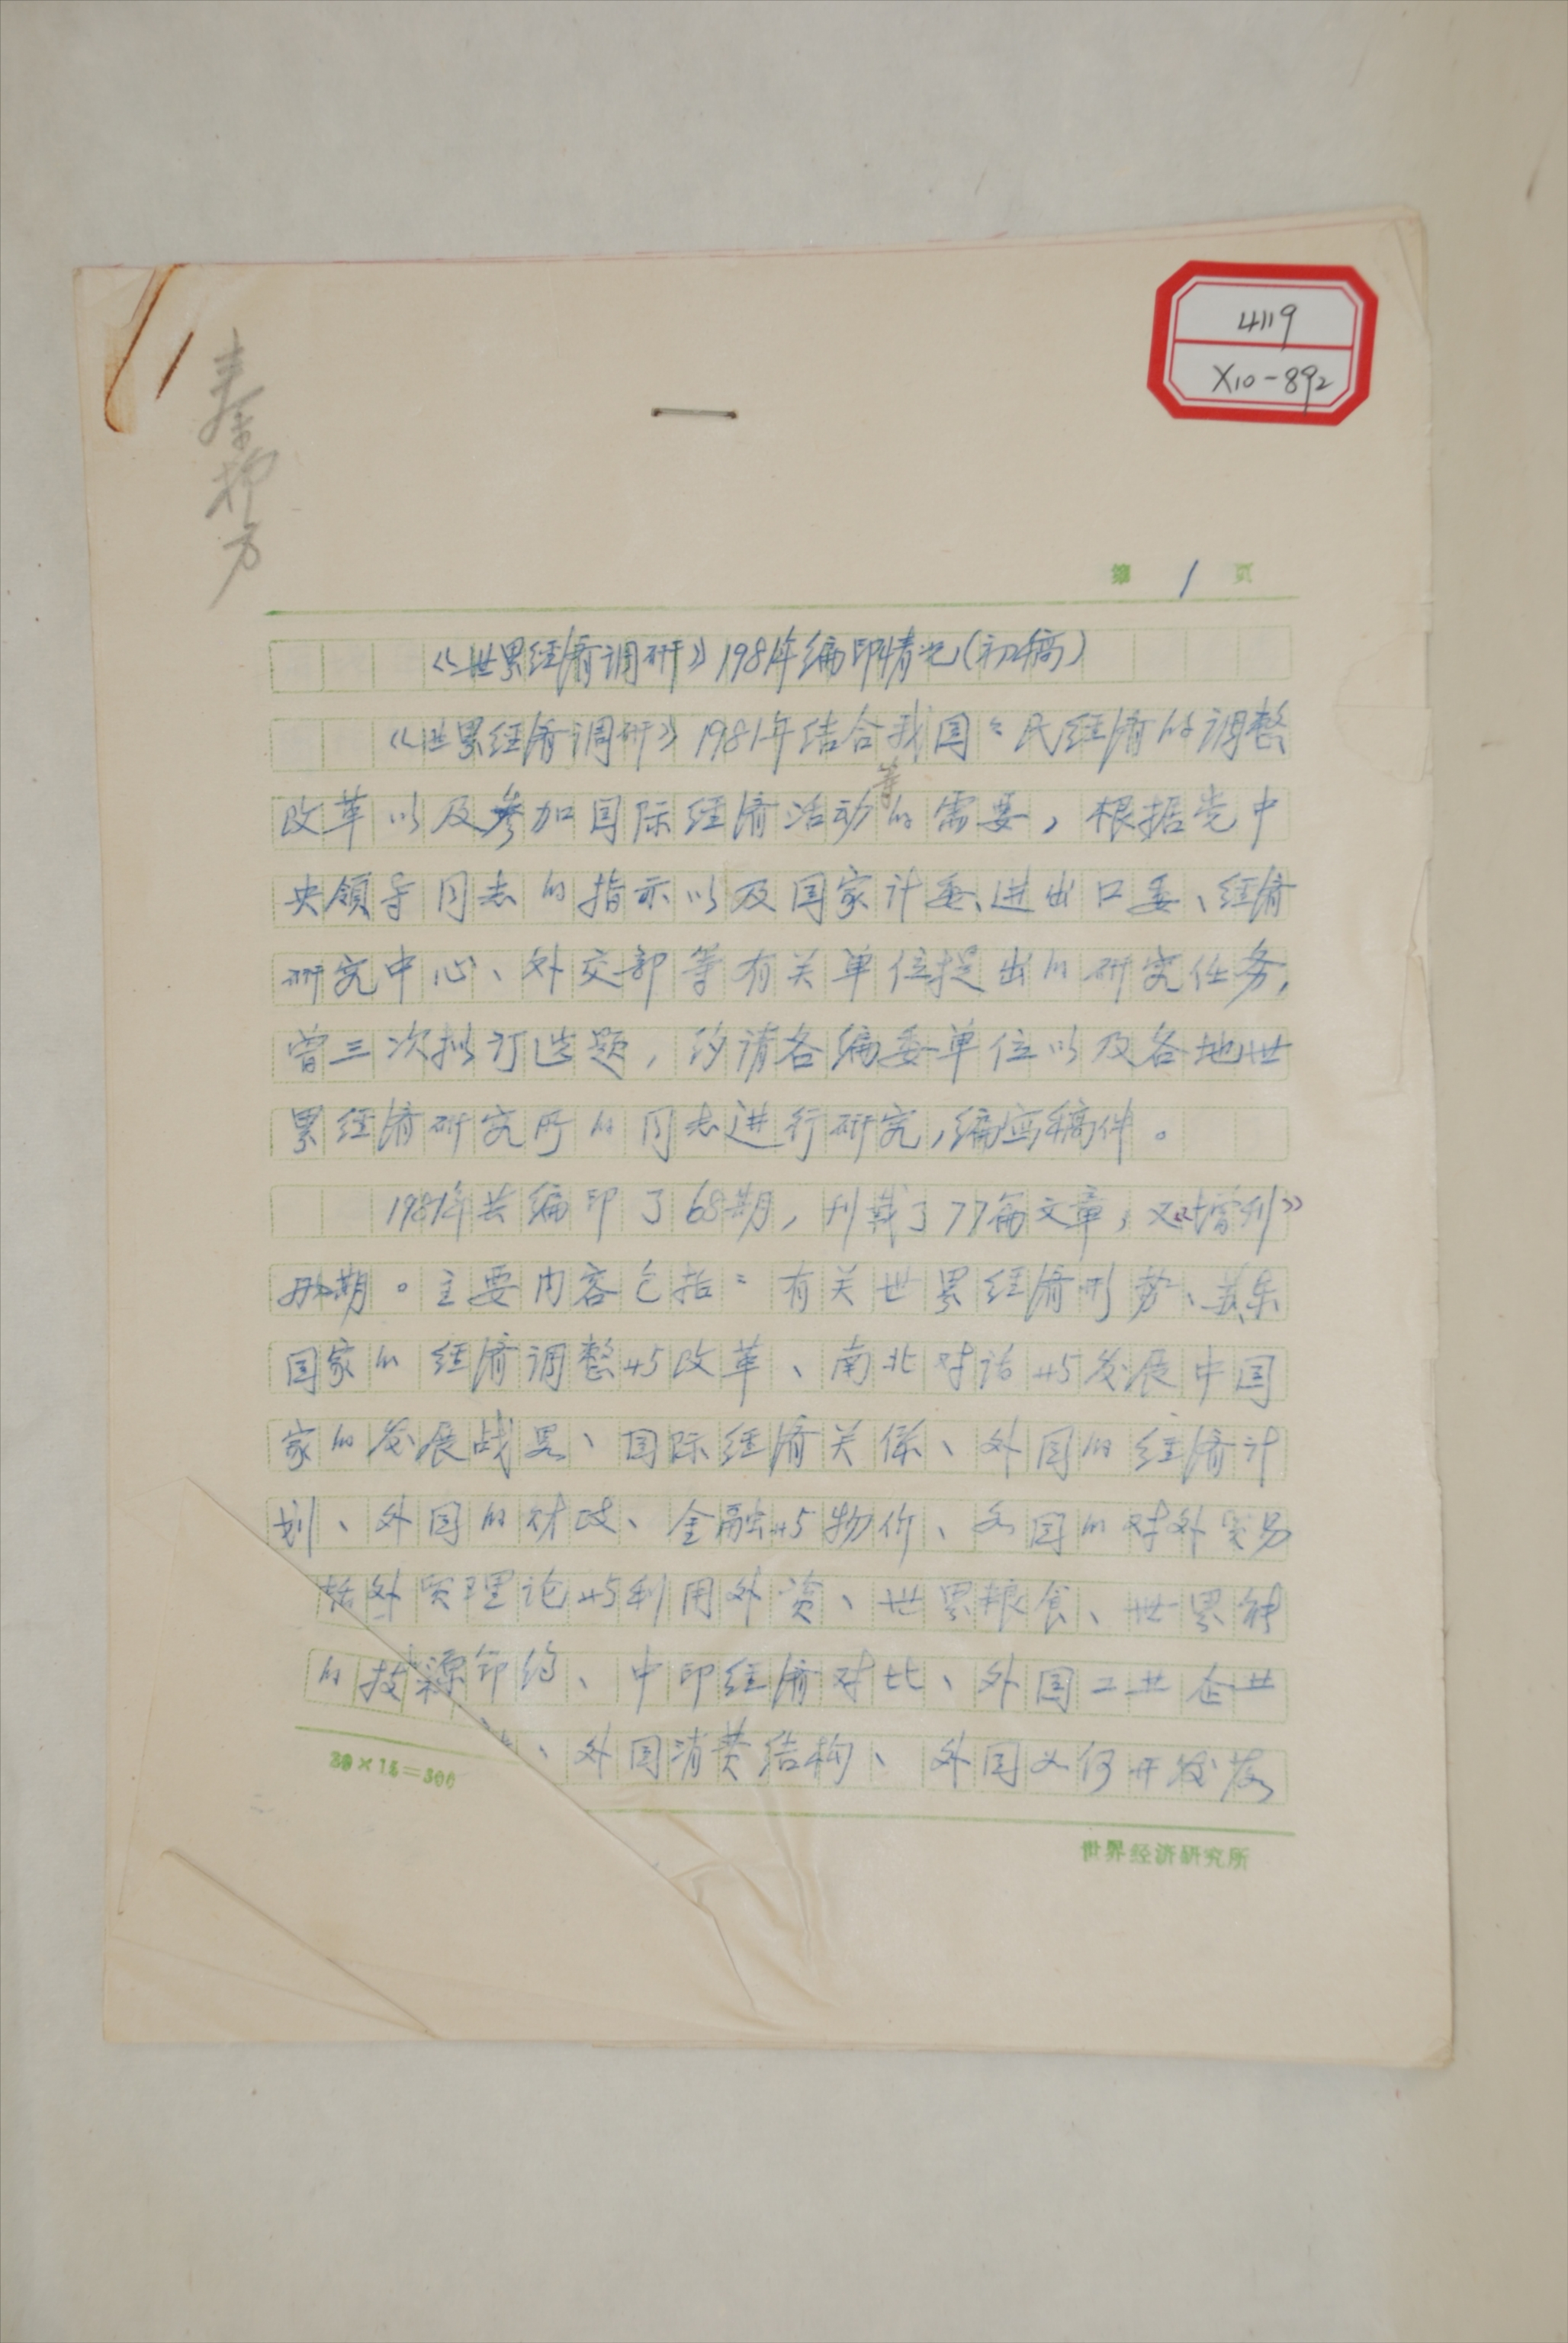 4119
X10-892
秦柳方
第 1 页
《世界经济调研》1981年编印情况(初稿)
《世界经济调研》1981年结合我国々民经济的调整
改革以及参加国际经济活动等的需要，根据党中
央领导同志的指示以及国家计委、进出口委、经济
研究中心、外交部等有关单位提出的研究任务，
曾三次拟订选题，约请各编委单位以及各地世
界经济研究所的同志进行研究，编写稿件。
1981年共编印了68期，刊载了77篇文章，又《增刊》
期。主要内容包括：有关世界经济形势、苏东
国家的经济调整与改革、南北对话与发展中国
家的发展战略、国际经济关係、外国的经济计
划、外国的财政、金融与物价、各国的对外贸易
括外贸理论与利用外资、世界粮食、世界能
的技源节约、中印经济对比、外国工业企业
、外国消费结构、外国如何开发落
20×15=300
世界经济研究所